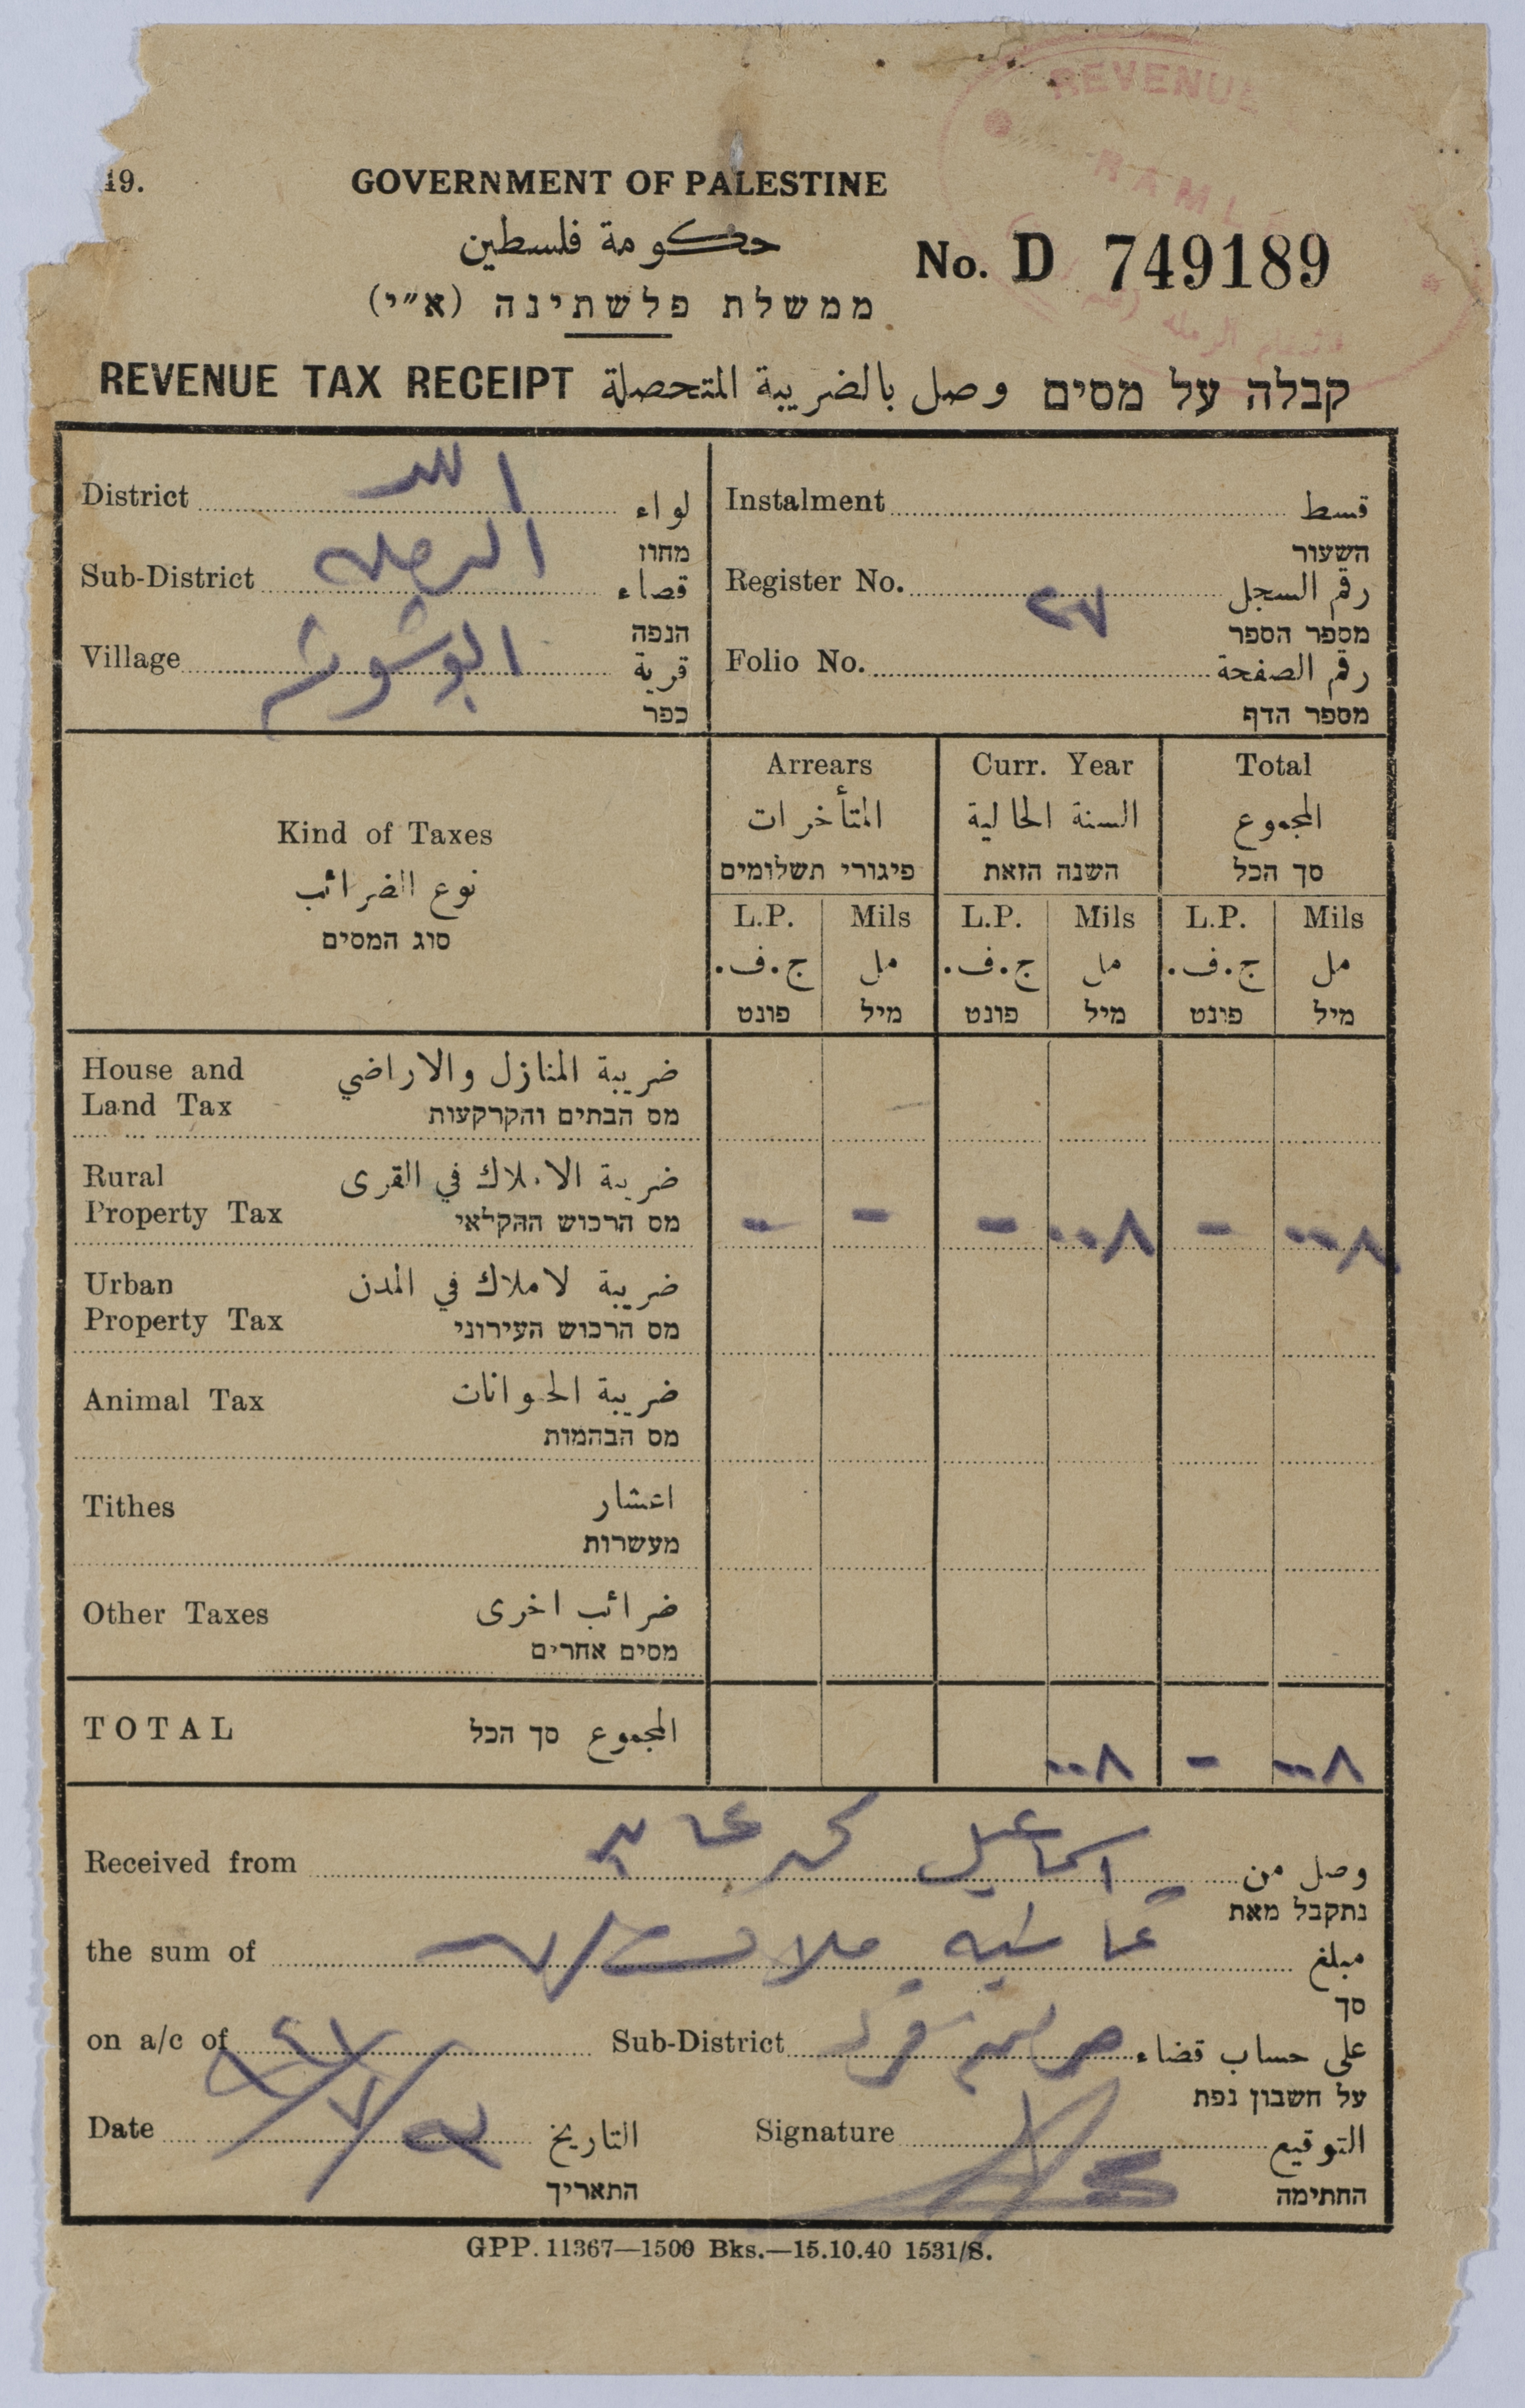 REVENUE
RAMLE
19.
GOVERNMENT OF PALESTINE
حكومة فلسطين
ממשלת פלשתינה (א״י)
No. D 749189
REVENUE TAX RECEIPT وصل بالضريبة المتحصلة קבלה על מסים
District اللد لواء
מחוז
Sub-District الرمله قضاء
הנפה
Village قرية
כפר
Instalment قسط
השעור
Register No. ٢٧ رقم السجل
מספר הספר
Folio No. رقم الصفحة
מספר הדף
Kind of Taxes
نوع الضرائب
סוג המסים
Arrears Curr. Year Total
المتأخرات السنة الحالية المجموع
פיגורי תשלומים השנה הזאת סך הכל
L.P. Mils L.P. Mils L.P. Mils
ج.ف. مل ج.ف. مل ج.ف. مل
פונט מיל פונט מיל פונט מיל
House and ضريبة المنازل والاراضي
Land Tax מס הבתים והקרקעות
Rural ضريبة الاملاك في القرى
Property Tax מס הרכוש החקלאי - - - ٠٠٨ - ٠٠٨
Urban ضريبة لاملاك في المدن
Property Tax מס הרכוש העירוני
Animal Tax ضريبة الحيوانات
מס הבהמות
Tithes اعشار
מעשרות
Other Taxes ضرائب اخرى
מסים אחרים
TOTAL المجموع סך הכל ٠٠٨ - ٠٠٨
Received from اسماعيل وصل من
נתקבל מאת
the sum of ثمانيه ملات مبلغ
סך
on a/c of Sub-District على حساب قضاء
על חשבון נפת
Date التاريخ
התאריך
Signature التوقيع
החתימה
GPP. 11367—1500 Bks.—15.10.40 1531/S.